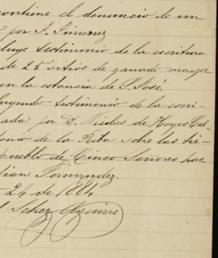 contiene el denuncio de un
por S. Jimenez
cluye testimonio de la escritura
de 25 sitios de ganado mayor
en la estancia de S. José
yendo testimonio de la escri-
ada por D. Nicolas de Hoyos
onio de la Rita sobre las
pueblo de Cinco Señores por
lian Fernandez.
24 de 1884
Schez Aguirre